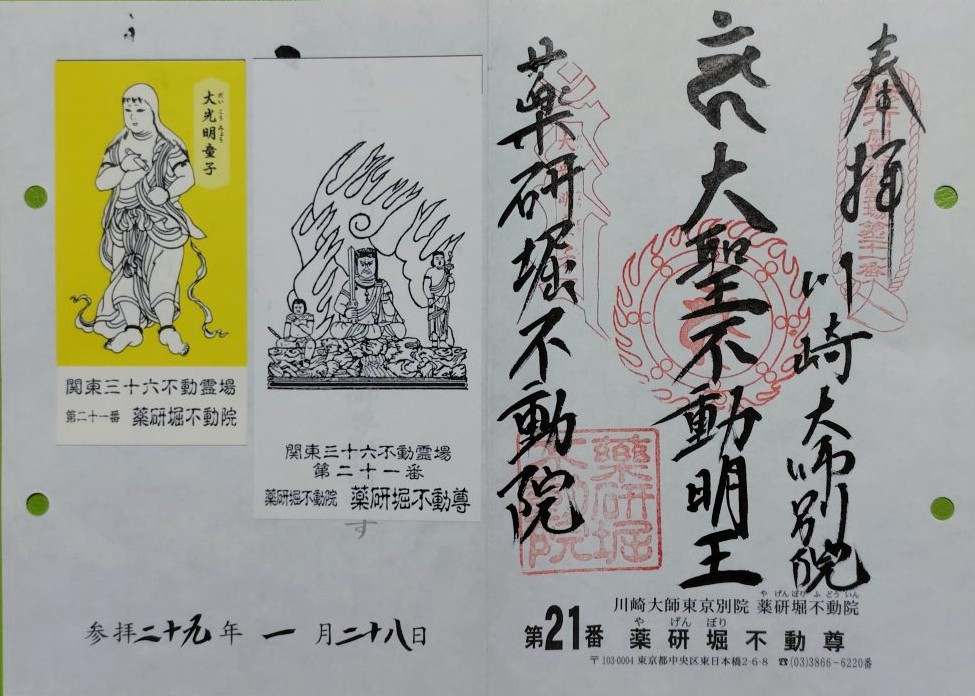 奉拝
川崎大師別院
大聖不動明王
薬研堀不動院
薬研堀
川崎大師東京別院 薬研堀不動院
や げんぼり ふ どう いん
第21番 薬研堀不動尊
や げん ぼり
〒103-0004 東京都中央区東日本橋2-6-8 ☎(03)3866-6220番
大光明童子
だい こう みょう
関東三十六不動霊場
第二十一番 薬研堀不動院
関東三十六不動霊場
第二十一番
薬研堀不動院 薬研堀不動尊
す
参拝二十九年 一月二十八日